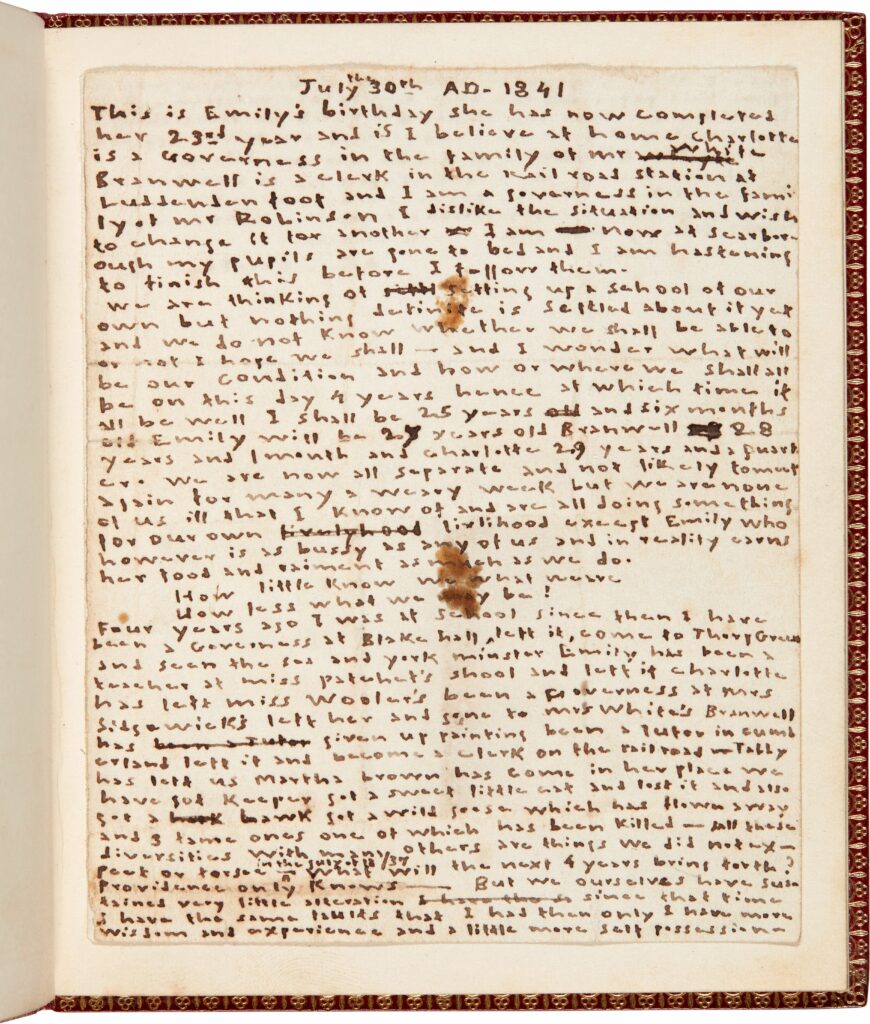 July the 30th AD- 1841
This is Emily's birthday she has now completed
her 23rd year and is I believe at home Charlotte
is a Governess in the family of mr White
Branwell is a clerk in the railroad station at
Luddenden foot and I am a governess in the fami-
ly of mr Robinson I dislike the situation and wish
to change it for another I am now at scarbor-
ough my pupils are gone to bed and I am hastening
to finish this before I follow them.
we are thinking of setting up a school of our
own but nothing definite is settled about it yet
and we do not know whether we shall be able to
or not I hope we shall — and I wonder what will
be our condition and how or where we shall all
be on this day 4 years hence at which time if
all be well I shall be 25 years old and six months
old Emily will be 27 years old Branwell 28
years and 1 month and charlotte 29 years and a quart
er. We are now all separate and not likely to meet
again for many a weary week but we are none
of us ill that I know of and are all doing something
for our own livelyhood livlihood except Emily who
however is as bussy as any of us and in reality earns
her food and raiment as much as we do.
How little know we what we are
How less what we may be!
Four years ago I was at school since then I have
been a Governess at Blake hall, left it, come to Thorp Green
and seen the sea and york minster Emily has been a
teacher at miss patchet's shool and left it charlotte
has left miss Wooler's been a Governess at Mrs
Sidgewick's left her and gone to mrs White's Branwell
has been a tutor given up painting been a tutor in cumb
erland left it and become a clerk on the railroad — Tabby
has left us Martha brown has come in her place we
have got Keeper got a sweet little cat and lost it and also
got a hawk got a wild goose which has flown away
and 3 tame ones one of which has been killed — all these
diversities with many others are things we did not ex-
pect or forsee in the July of 18/37 — What will the next 4 years bring forth?
Providence only knows —— But we ourselves have sus-
tained very little alteration I have the s since that time
I have the same faults that I had then only I have more
wisdom and experience and a little more self possession